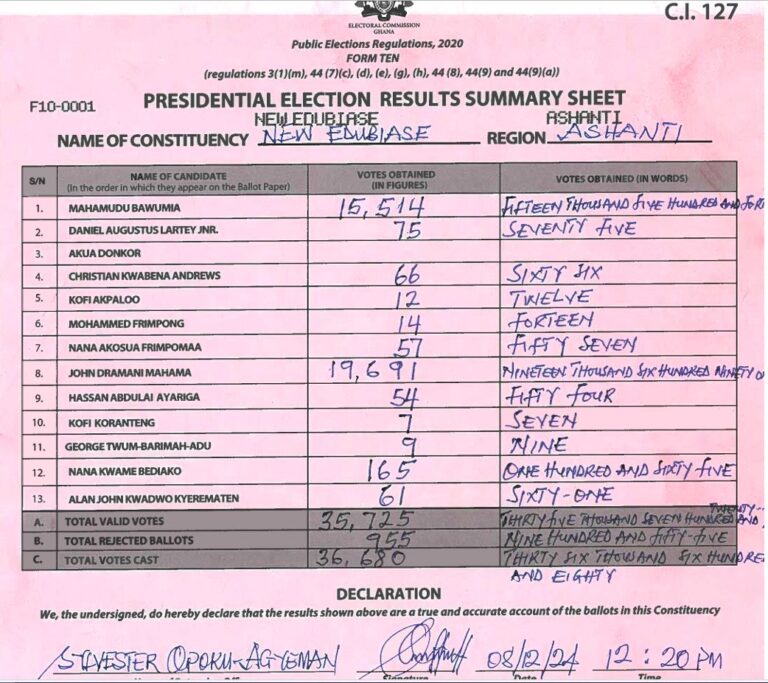 C.I. 127
ELECTORAL COMMISSION
GHANA
Public Elections Regulations, 2020
FORM TEN
(regulations 3(1)(m), 44 (7)(c), (d), (e), (g), (h), 44 (8), 44(9) and 44(9)(a))
F10-0001 PRESIDENTIAL ELECTION RESULTS SUMMARY SHEET
NEW EDUBIASE ASHANTI
NAME OF CONSTITUENCY NEW EDUBIASE REGION ASHANTI
S/N NAME OF CANDIDATE (In the order in which they appear on the Ballot Paper) VOTES OBTAINED (IN FIGURES) VOTES OBTAINED (IN WORDS)
1. MAHAMUDU BAWUMIA 15,514 FIFTEEN THOUSAND FIVE HUNDRED AND FORT
2. DANIEL AUGUSTUS LARTEY JNR. 75 SEVENTY FIVE
3. AKUA DONKOR
4. CHRISTIAN KWABENA ANDREWS 66 SIXTY SIX
5. KOFI AKPALOO 12 TWELVE
6. MOHAMMED FRIMPONG 14 FORTEEN
7. NANA AKOSUA FRIMPOMAA 57 FIFTY SEVEN
8. JOHN DRAMANI MAHAMA 19,691 NINETEEN THOUSAND SIX HUNDRED NINETY O
9. HASSAN ABDULAI AYARIGA 54 FIFTY FOUR
10. KOFI KORANTENG 7 SEVEN
11. GEORGE TWUM-BARIMAH-ADU 9 NINE
12. NANA KWAME BEDIAKO 165 ONE HUNDRED AND SIXTY FIVE
13. ALAN JOHN KWADWO KYEREMATEN 61 SIXTY-ONE
A. TOTAL VALID VOTES 35,725 THIRTY FIVE THOUSAND SEVEN HUNDRED AND TWENTY-
B. TOTAL REJECTED BALLOTS 955 NINE HUNDRED AND FIFTY-FIVE
C. TOTAL VOTES CAST 36,680 THIRTY SIX THOUSAND SIX HUNDRED
AND EIGHTY
DECLARATION
We, the undersigned, do hereby declare that the results shown above are a true and accurate account of the ballots in this Constituency
SYLVESTER OPOKU-AGYEMAN 08/12/24 12:20 PM
Signature Date Time